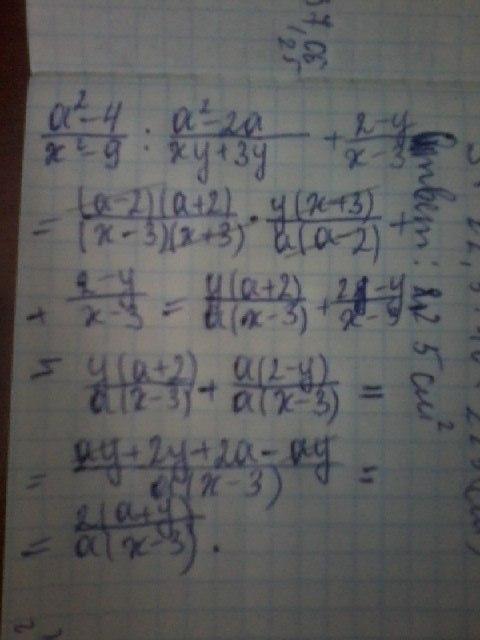 (a²-4)/(x²-9) : (a²-2a)/(xy+3y) + (2-y)/(x-3)
= ((a-2)(a+2))/((x-3)(x+3)) · (y(x+3))/(a(a-2)) +
+ (2-y)/(x-3) = (y(a+2))/(a(x-3)) + (2-y)/(x-3)
= (y(a+2))/(a(x-3)) + (a(2-y))/(a(x-3)) =
= (ay+2y+2a-ay)/(a(x-3)) =
= (2(a+y))/(a(x-3)).
Ответ: 5 см²